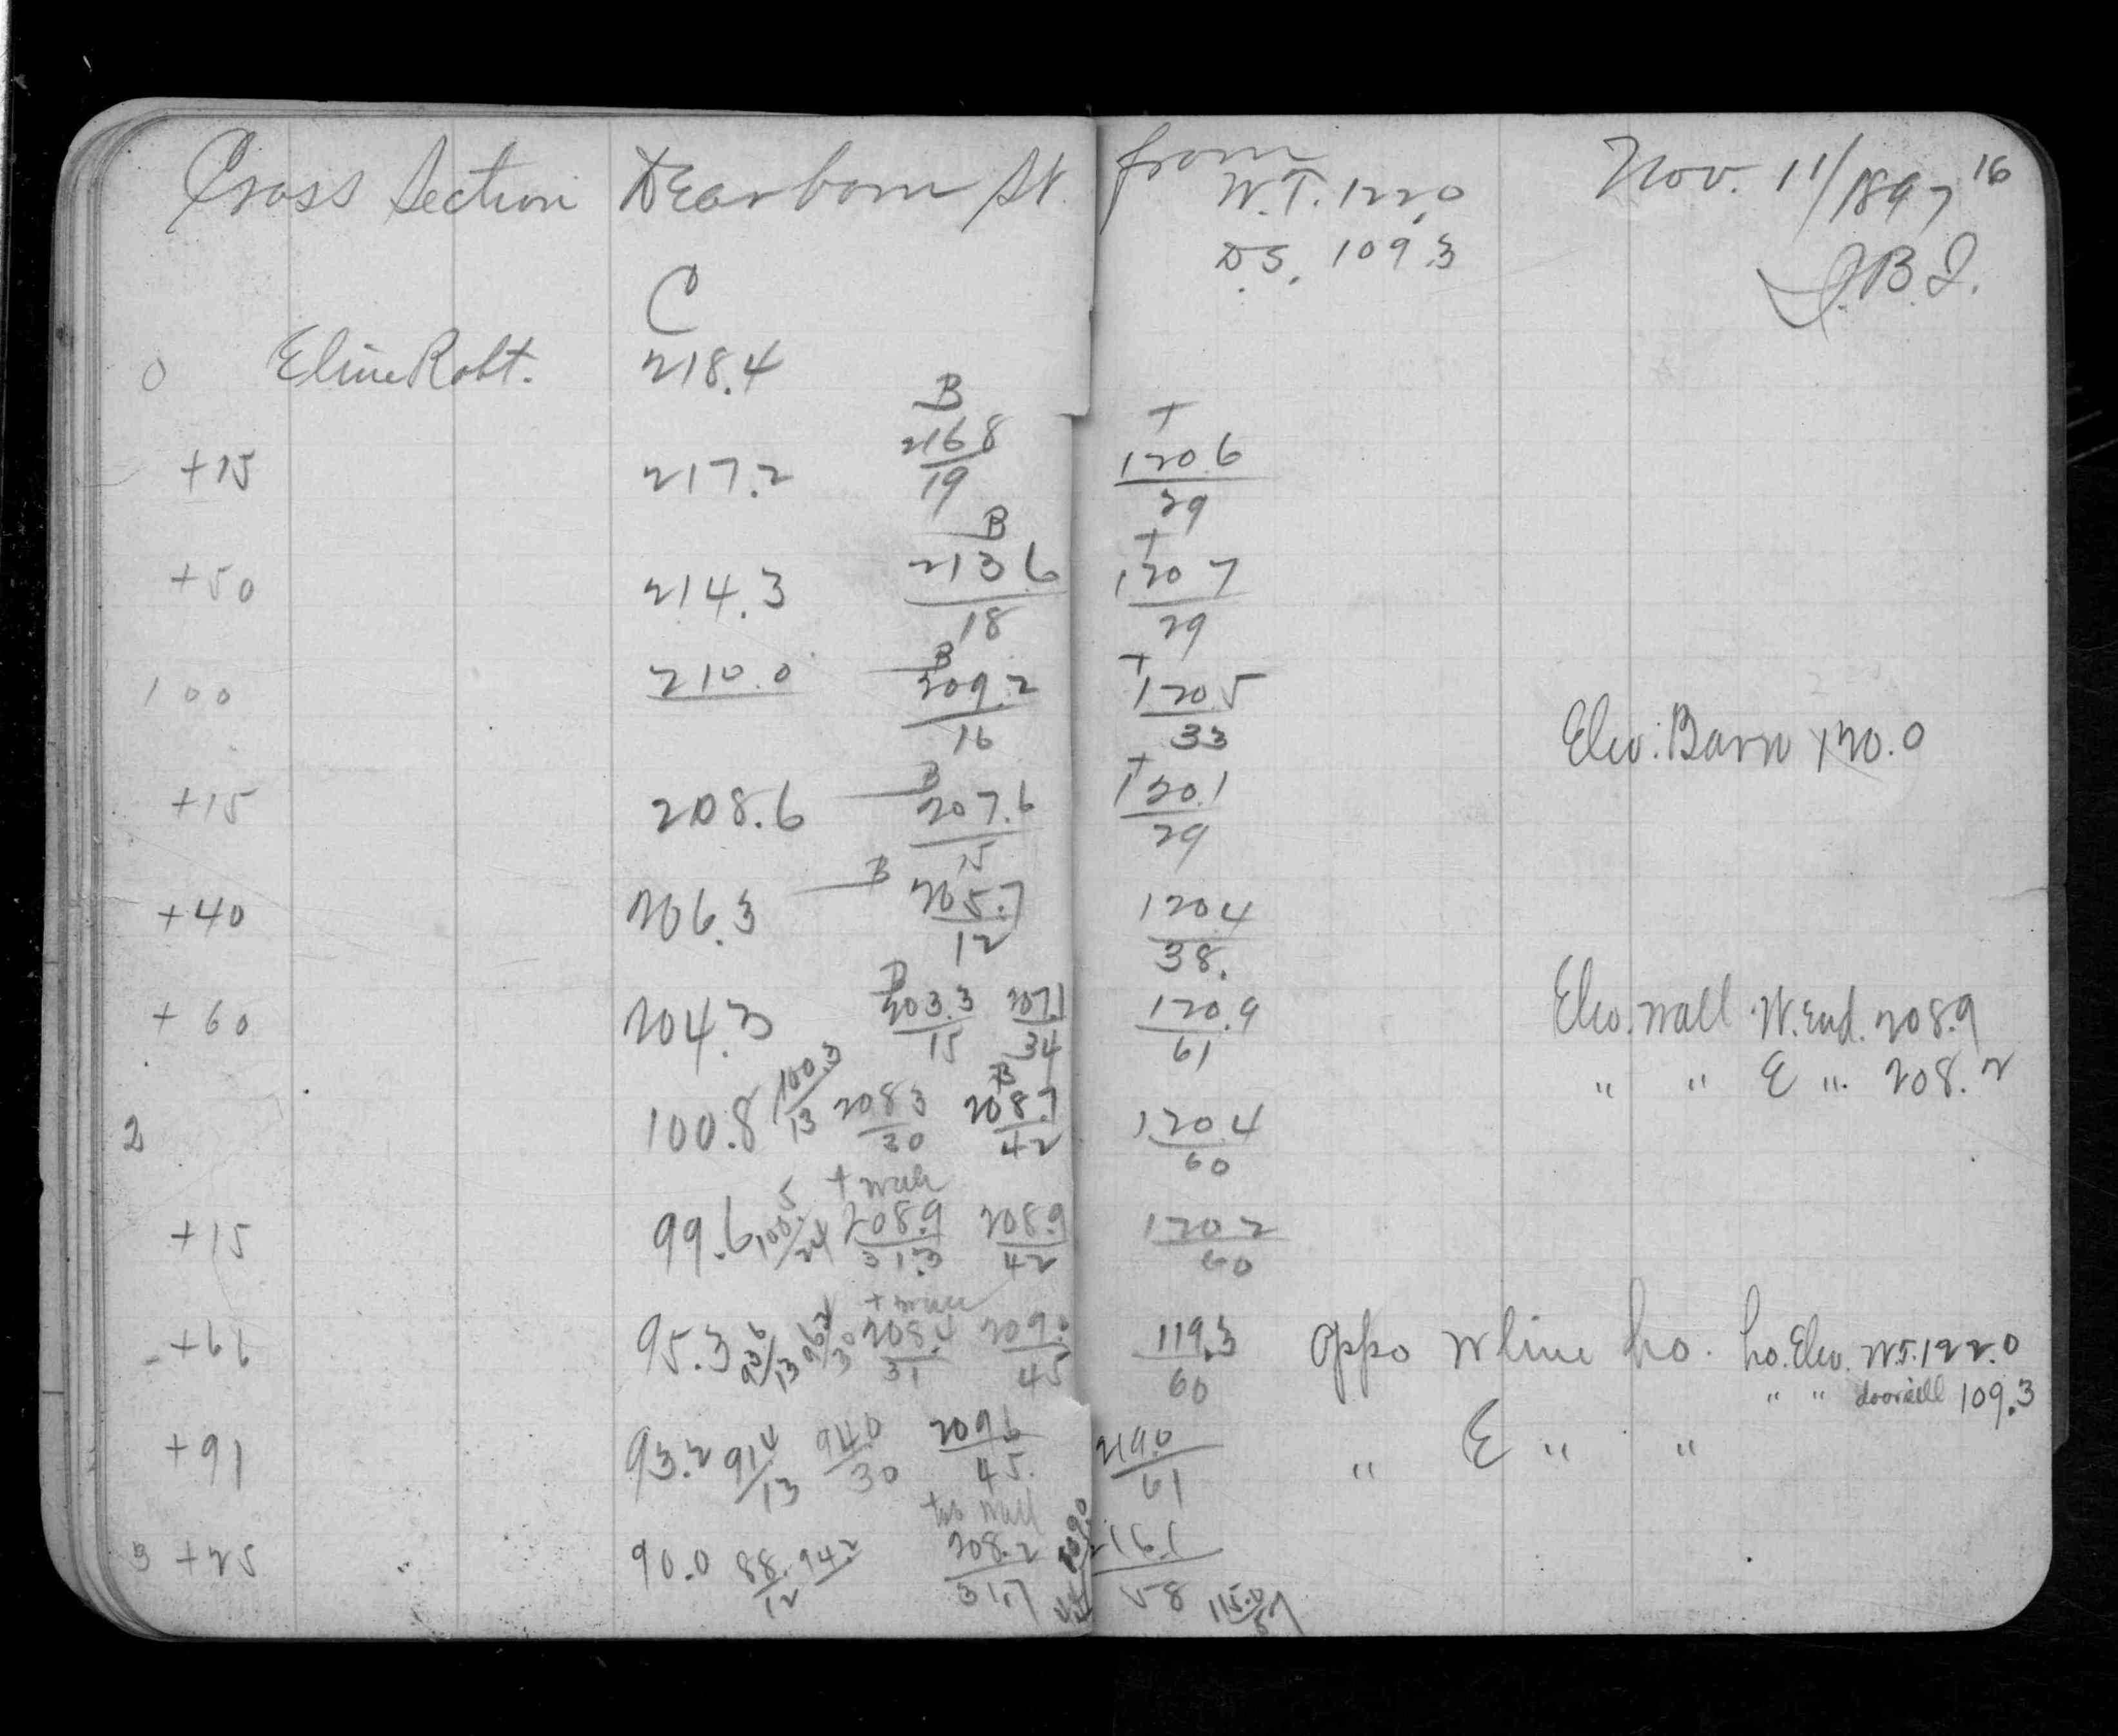 Cross Section Dearborn St. from Nov. 11/1897 16
W.T. 122.0
D.S. 109.3
C
0 E line Robt. 218.4
B T
+15 217.2 216.8/19 120.6/29
B T
+50 214.3 213.6/18 120.7/29
B T
100 210.0 209.2/16 120.5/33 Elev. Barn 120.0
B T
+15 208.6 207.6/15 120.1/29
B
+40 206.3 205.7/12 120.4/38.
B
+60 204.3 203.3/15 207.1/34 120.9/61 Elev. wall W. End. 208.9
" " E ". 208.2
B
2 100.8 100.3/13 208.3/30 208.7/42 120.4/60
+ wall
+15 99.6 100.5/24 208.9/31.3 208.9/42 120.2/60
+ wall
+66 95.3 93.6/13 96.2/30 208.4/31 209.0/45 119.3/60 Oppo W line ho. ho. Elev. W.T. 122.0
" " doorsill 109.3
+91 93.2 91.4/13 94.0/30 209.6/45. 219.0/61 " E " "
top wall
3 +25 90.0 88./12 94.2 208.2/31.7 209.0/44 216.1/58 115.0/57